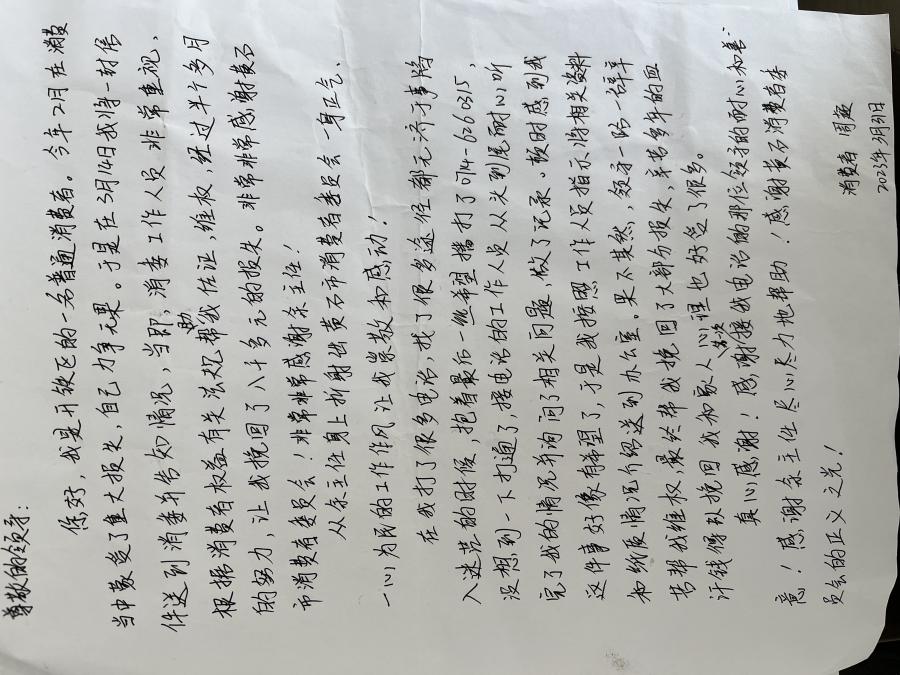 尊敬的领导:
你好,我是开铁区的一名普通消费者。今年2月在消费
当中蒙受了重大损失,自己力争无果。于是在3月14日我将一封信
件送到消委并告知情况,当即,消委工作人员非常重视,
根据消费者权益有关法规帮助我佐证,维权,经过半个多月
的努力,让我挽回了八千多元的损失。非常非常感谢黄石
市消费者委员会!非常非常感谢余主任!
从余主任身上折射出黄石市消费者委员会一身正气、
一心为民的工作作风让我崇敬和感动!
在我打了很多电话,找了很多途径都无济于事陷
入迷茫的时候,抱着最后一丝希望拨打了0714-6260315,
没想到一下打通了,接电话的工作人员从头到尾耐心听
完了我的情况并询问了相关问题,做了记录。顿时感到我
这件事好像有希望了,于是我按照工作人员指示将相关资料
和纸质情况介绍送到办公室。果不其然,领导一路一辞辛
苦帮我维权,最终帮我挽回了大部分损失,辛苦多年的血
汗钱得以挽回我和家人心理也好受了很多。
真心感谢!感谢接我电话的那位领导的耐心和善
意!感谢余主任尽心尽力地帮助!感谢黄石消费者委
员会的正义之光!
消费者 周
2023年3月31日